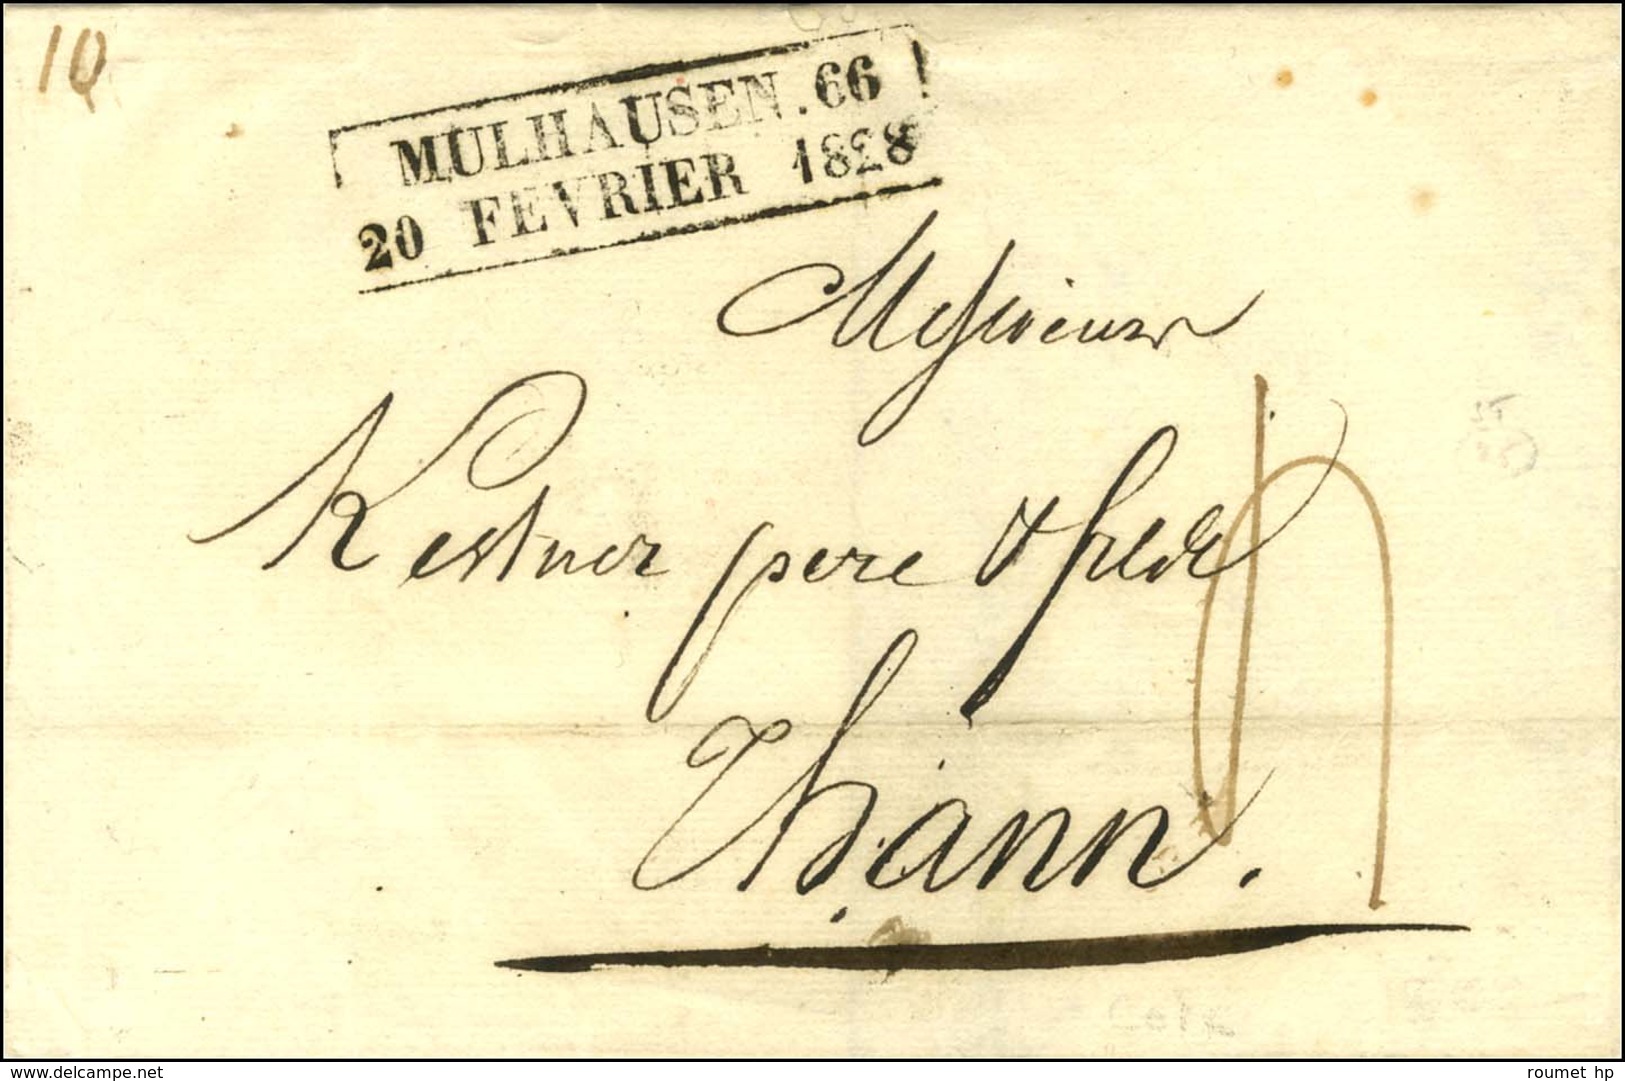 10
MULHAUSEN.66
20 FEVRIER 1828
Messieurs
Kestner pere & fils
Thann.
www.delcampe.net
roumet hp